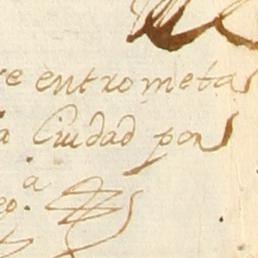 re entrometa
a Ciudad por
go.a